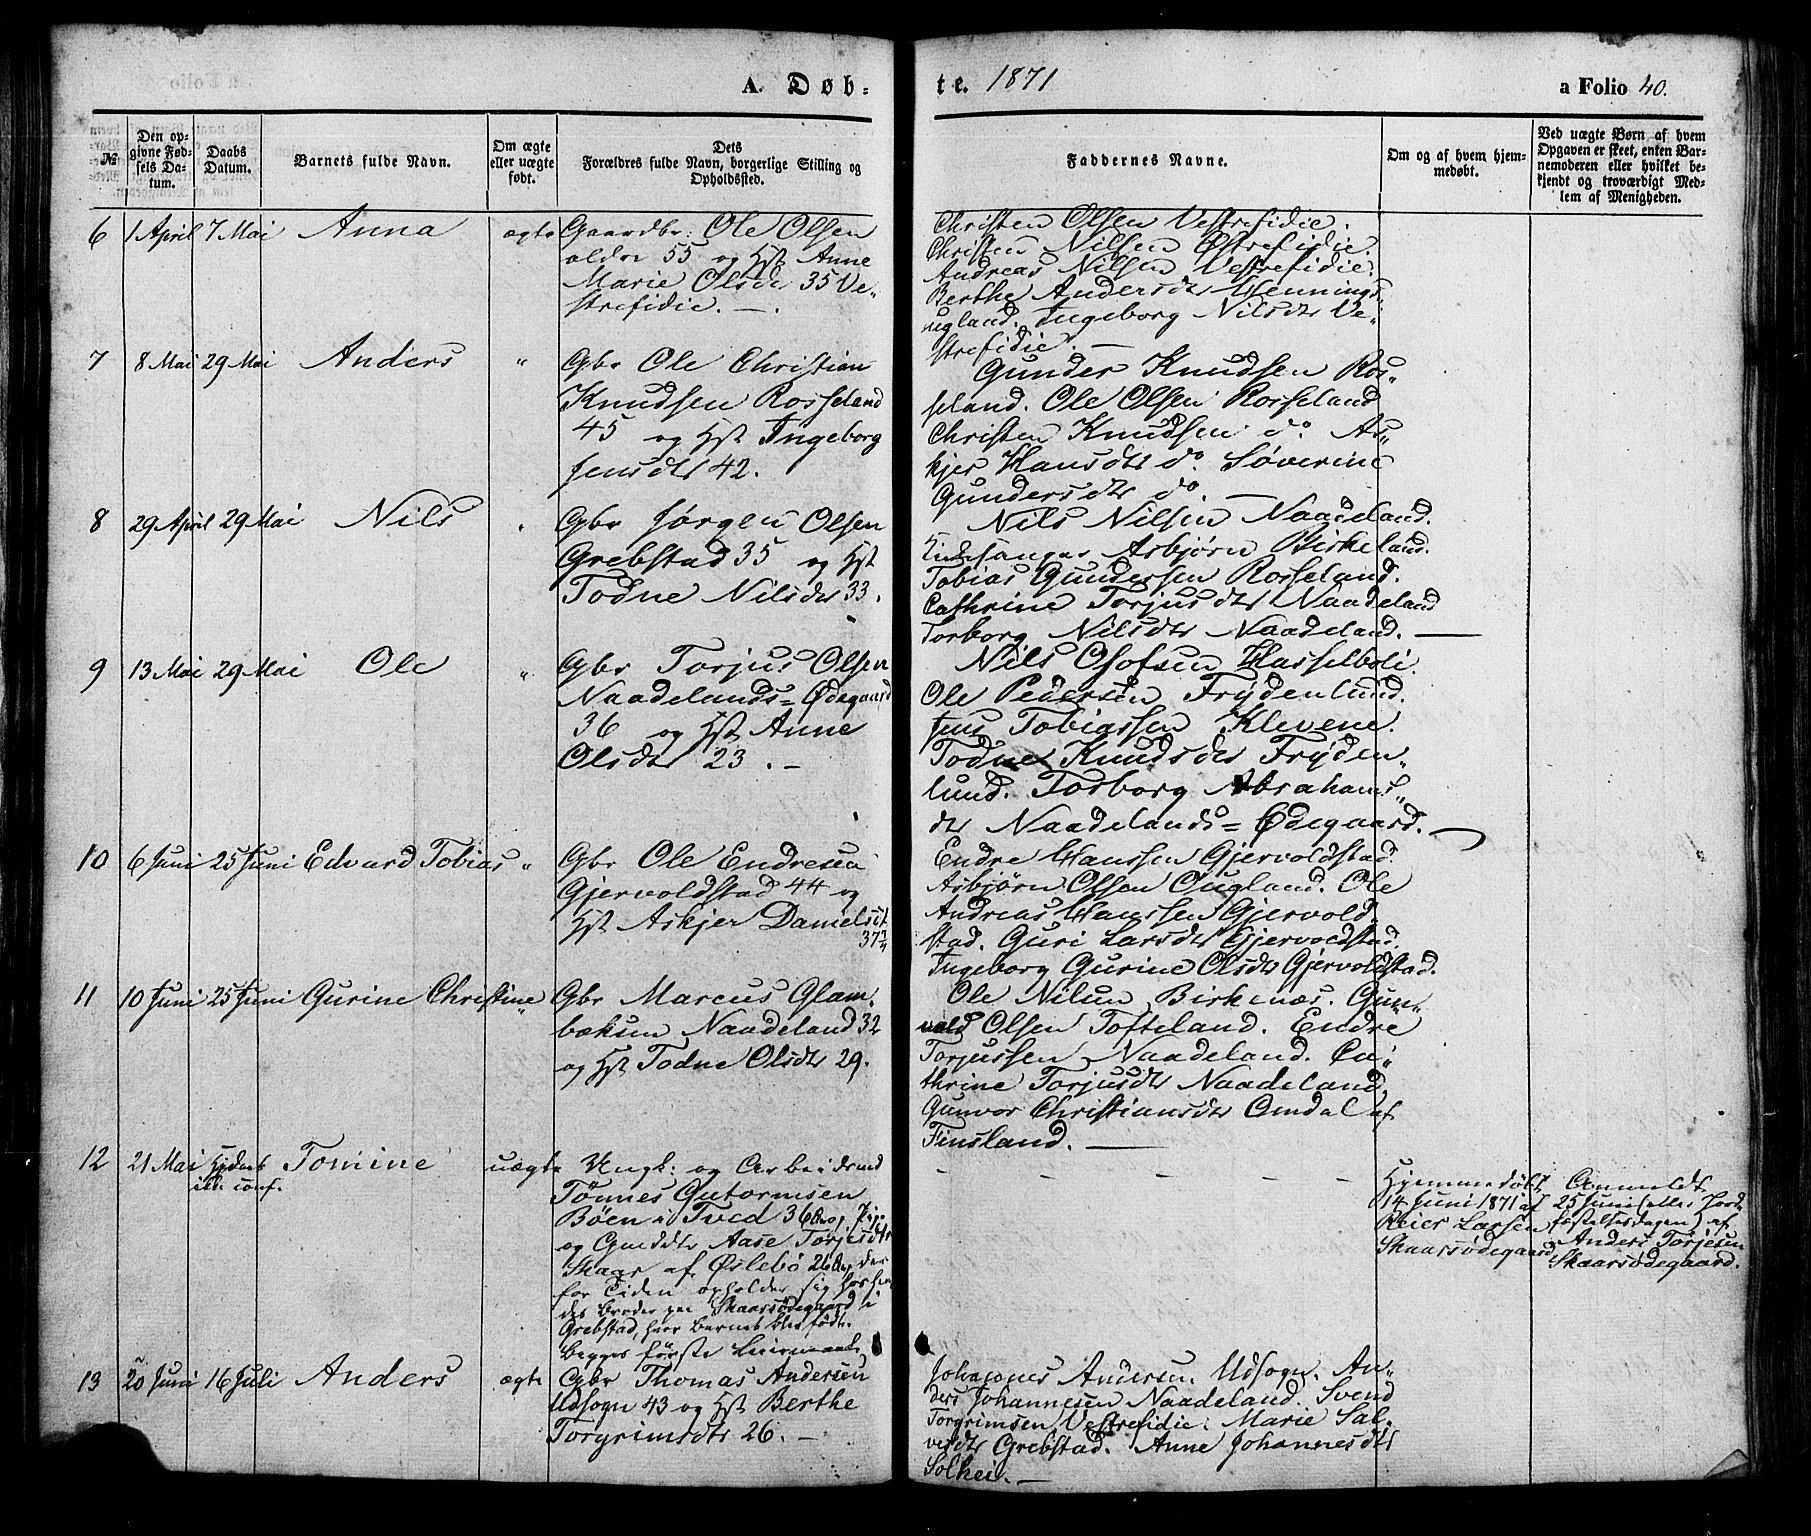 A. Døb-
te. 1871
a Folio 40.
№
Den op-
givne Fød-
sels Da-
tum.
Daabs
Datum.
Barnets fulde Navn.
Om ægte
eller uægte
født.
Dets
Forældres fulde Navn, borgerlige Stilling og
Opholdssted.
Faddernes Navne.
Om og af hvem hjem-
medøbt.
Ved uægte Børn af hvem
Opgaven er skeet, enten Bar-
nemoderen eller hvilket be-
kjendt og troværdigt Med-
lem af Menigheden.
6 1 April 7 Mai Anna ægte
Gaardbr: Ole Olsen
aldre 55 og Hst Anne
Marie Olsdr 35 Ve-
strefidie. —.
Christen Olsen Vestrefidie.
Christen Nilsen Østrefidie.
Andreas Nilsen Vestrefidie.
Berthe Andersdtr Hennings-
ugland. Ingeborg Nilsdtr Ve-
strefidie. —
7 8 Mai 29 Mai Anders "
Gbr Ole Christian
Knudsen Rosseland
45 og Hst Ingeborg
Jensdtr 42.
Gunder Knudsen Ros-
seland. Ole Olsen Rosseland
Christen Knudsen do. As-
kjer Hansdtr do. Søverine
Gundersdtr do. —
8 29 April 29 Mai Nils "
Gbr Jørgen Olsen
Grebstad 35 og Hst
Todne Nilsdtr 33.
Nils Nilsen Naadeland.
Kirkesanger Asbjørn Birkeland.
Tobias Gundersen Rosseland.
Cathrine Torjusdtr Naadeland
Torborg Nilsdtr Naadeland. —
9 13 Mai 29 Mai Ole "
Gbr Torjus Olsen
Naadelands=Ødegaard
36 og Hst Anne
Olsdtr 23. —
Nils Olofsen Hasselboli.
Ole Pedersen Frydenlund.
Jens Tobiassen Klevene.
Todne Knudsdtr Fryden-
lund. Torborg Abrahams-
dtr Naadelands=Ødegaard.
10 6 Juni 25 Juni Edvard Tobias "
Gbr Ole Endresen
Gjervoldstad 44 og
Hst Askjer Danielsdt.
37¾
Endre Hanssen Gjervoldstad.
Asbjørn Olsen Ougland. Ole
Andreas Hanssen Gjervold-
stad. Guri Larsdtr Gjervoldstad.
Ingeborg Gurine Olsdtr Gjervoldstad.
11 10 Juni 25 Juni Gurine Christine "
Gbr Marcus Glam-
beksen Naadeland 32
og Hst Todne Olsdtr 29.
Ole Nilsen Birkenæs. Gun-
vald Olsen Tofteland. Endre
Torjussen Naadeland. Ca-
thrine Torjusdtr Naadeland.
Gunvor Christiansdtr Omdal af
Finsland. —
12 21 Mai Hjdøbt
ikke conf.
Tomine uægte
Ungk: og Arbeidsmd
Tønnes Gutormsen
Bøen i Tved 36
og Gmddtr Aase Torjesdtr
Skaar af Øslebø 26 der
for Tiden opholder sig hos hen
des Broder paa Skaarsødegaard i
Grebstad, hvor Barnet blev født.
Begges første Leiermaal.
Hjemmedøbt
14 Juni 1871 af
Reier Larsen
Skaarsødegaard
Anmeldt
25 Juni af
Anders Torjesen
Skaarsødegaard.
13 20 Juni 16 Juli Anders ægte
Gbr Thomas Andersen
Udsogn 43 og Hst Berthe
Torgrimsdtr 26. —
Johannes Andersen Udsogn. An-
ders Johannesen Naadeland. Svend
Torgrimsen Vestrefidie. Marie Sal-
vesdtr Grebstad. Anne Johannesdtr
Solhei. —